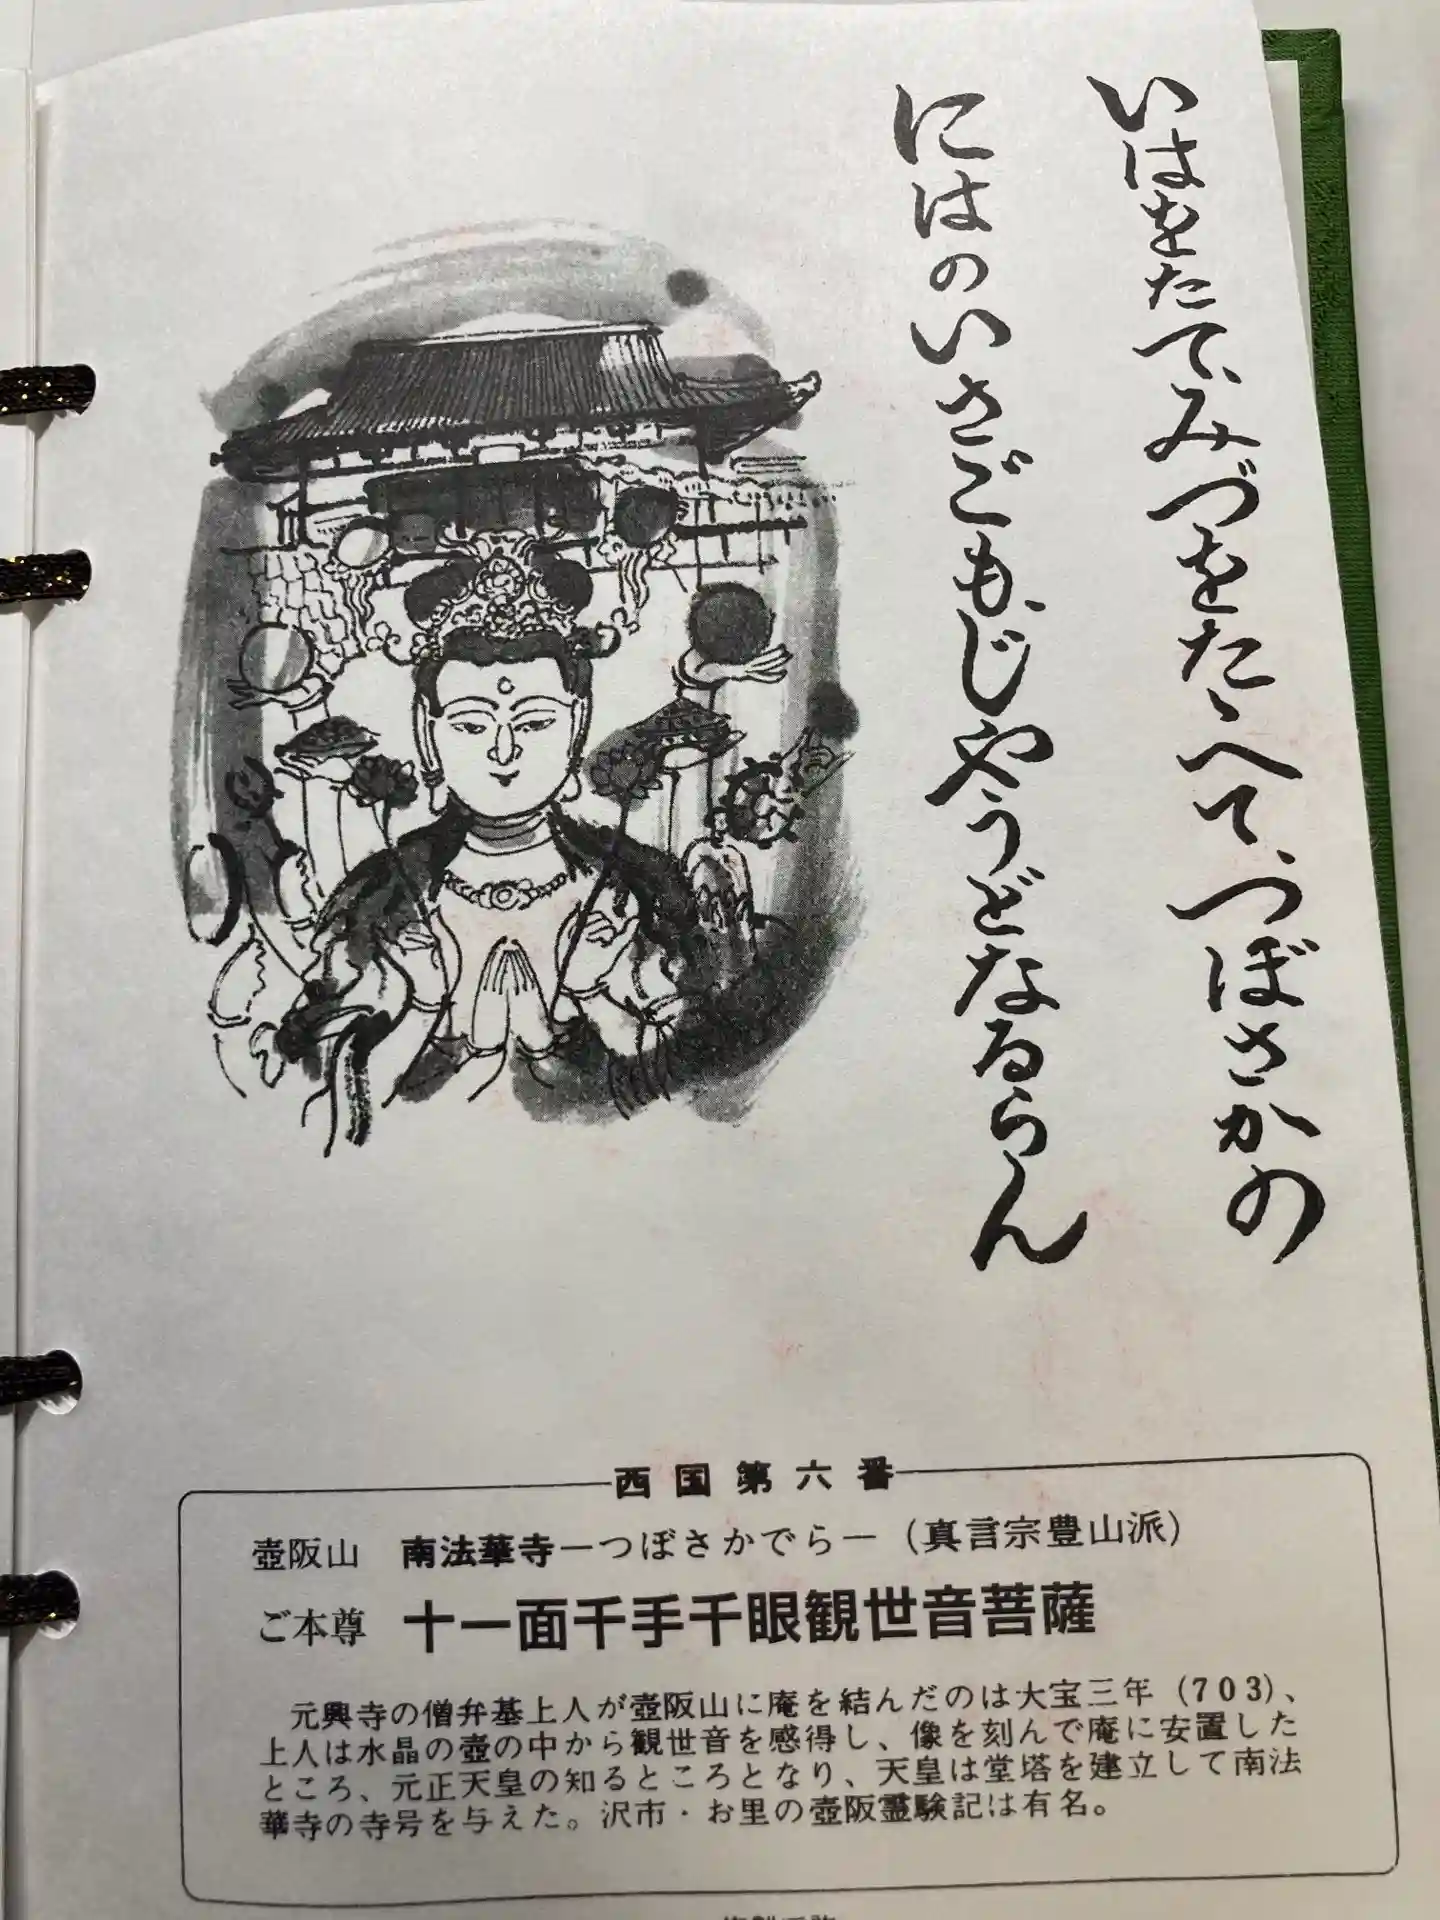 いはをたて、みづをたゝへて、つぼさかの
にはのいさごも、じやうどなるらん
西国第六番
壺阪山　南法華寺―つぼさかでら―（真言宗豊山派）
ご本尊　十一面千手千眼観世音菩薩
元興寺の僧弁基上人が壺阪山に庵を結んだのは大宝三年（703）、
上人は水晶の壺の中から観世音を感得し、像を刻んで庵に安置した
ところ、元正天皇の知るところとなり、天皇は堂塔を建立して南法
華寺の寺号を与えた。沢市・お里の壺阪霊験記は有名。